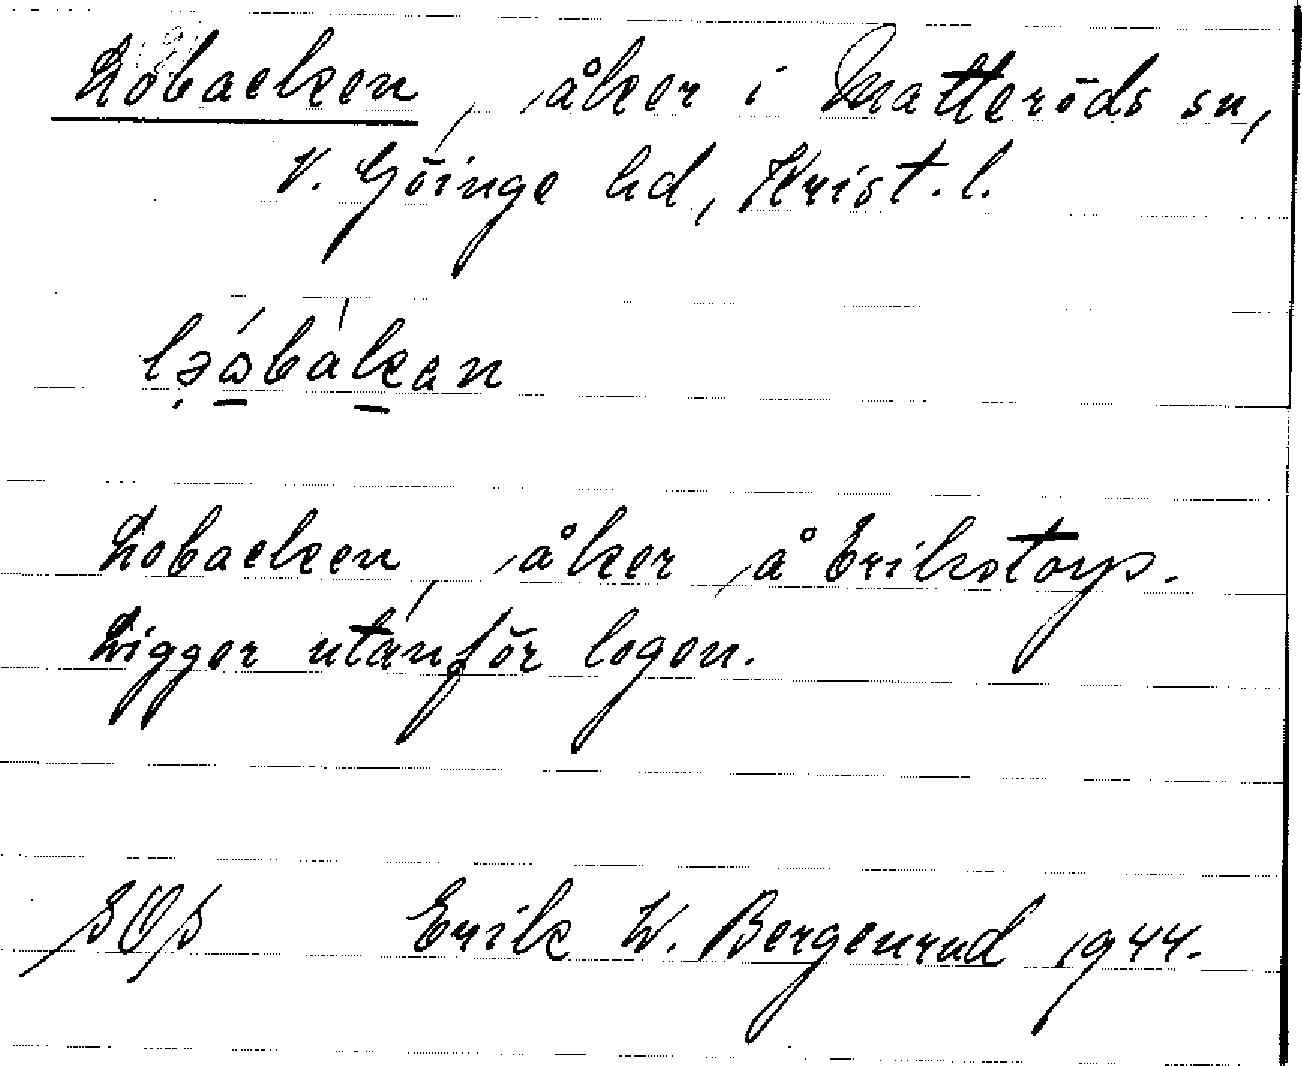 Lobacken, åker i Matteröds sn,
V. Göinge hd, Krist. l.
Lobacken, åker å Erikstorp.
Ligger utanför logen.
Erik W. Bergenrud 1944.